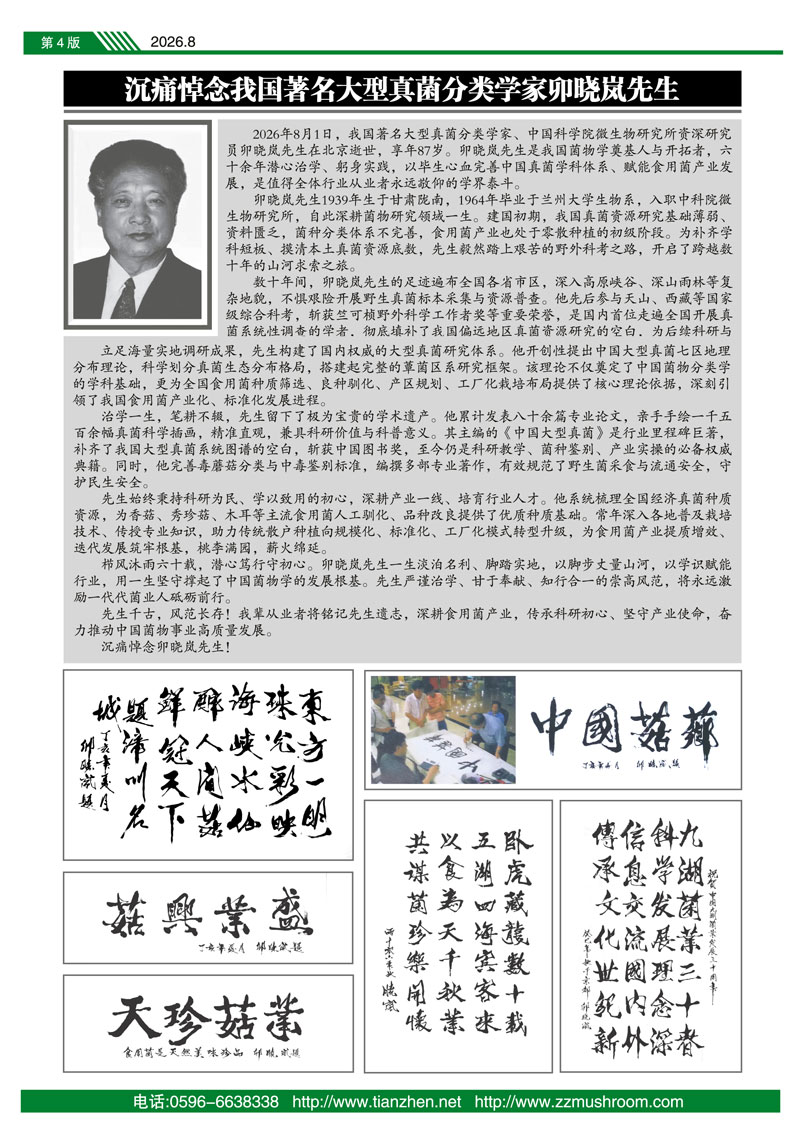 第 4 版
2026.8
沉痛悼念我国著名大型真菌分类学家卯晓岚先生
2026年8月1日，我国著名大型真菌分类学家、中国科学院微生物研究所资深研究
员卯晓岚先生在北京逝世，享年87岁。卯晓岚先生是我国菌物学奠基人与开拓者，六
十余年潜心治学、躬身实践，以毕生心血完善中国真菌学科体系、赋能食用菌产业发
展，是值得全体行业从业者永远敬仰的学界泰斗。
卯晓岚先生1939年生于甘肃陇南，1964年毕业于兰州大学生物系，入职中科院微
生物研究所，自此深耕菌物研究领域一生。建国初期，我国真菌资源研究基础薄弱、
资料匮乏，菌种分类体系不完善，食用菌产业也处于零散种植的初级阶段。为补齐学
科短板、摸清本土真菌资源底数，先生毅然踏上艰苦的野外科考之路，开启了跨越数
十年的山河求索之旅。
数十年间，卯晓岚先生的足迹遍布全国各省市区，深入高原峡谷、深山雨林等复
杂地貌，不惧艰险开展野生真菌标本采集与资源普查。他先后参与天山、西藏等国家
级综合科考，斩获竺可桢野外科学工作者奖等重要荣誉，是国内首位走遍全国开展真
菌系统性调查的学者，彻底填补了我国偏远地区真菌资源研究的空白，为后续科研与
立足海量实地调研成果，先生构建了国内权威的大型真菌研究体系。他开创性提出中国大型真菌七区地理
分布理论，科学划分真菌生态分布格局，搭建起完整的蕈菌区系研究框架。该理论不仅奠定了中国菌物分类学
的学科基础，更为全国食用菌种质筛选、良种驯化、产区规划、工厂化栽培布局提供了核心理论依据，深刻引
领了我国食用菌产业化、标准化发展进程。
治学一生，笔耕不辍，先生留下了极为宝贵的学术遗产。他累计发表八十余篇专业论文，亲手手绘一千五
百余幅真菌科学插画，精准直观，兼具科研价值与科普意义。其主编的《中国大型真菌》是行业里程碑巨著，
补齐了我国大型真菌系统图谱的空白，斩获中国图书奖，至今仍是科研教学、菌种鉴别、产业实操的必备权威
典籍。同时，他完善毒蘑菇分类与中毒鉴别标准，编撰多部专业著作，有效规范了野生菌采食与流通安全，守
护民生安全。
先生始终秉持科研为民、学以致用的初心，深耕产业一线、培育行业人才。他系统梳理全国经济真菌种质
资源，为香菇、秀珍菇、木耳等主流食用菌人工驯化、品种改良提供了优质种质基础。常年深入各地普及栽培
技术、传授专业知识，助力传统散户种植向规模化、标准化、工厂化模式转型升级，为食用菌产业提质增效、
迭代发展筑牢根基，桃李满园，薪火绵延。
栉风沐雨六十载，潜心笃行守初心。卯晓岚先生一生淡泊名利、脚踏实地，以脚步丈量山河，以学识赋能
行业，用一生坚守撑起了中国菌物学的发展根基。先生严谨治学、甘于奉献、知行合一的崇高风范，将永远激
励一代代菌业人砥砺前行。
先生千古，风范长存！我辈从业者将铭记先生遗志，深耕食用菌产业，传承科研初心、坚守产业使命，奋
力推动中国菌物事业高质量发展。
沉痛悼念卯晓岚先生！
東方一明
珠光彩映
海峡水仙
醉人闻菇
鲜冠天下
题漳州名
城
丁亥年夏月
卯晓岚题
中國菇鄉
丁亥年夏月 卯晓岚题
菇興業盛
丁亥年夏月 卯晓岚题
天珍菇業
食用菌是天然美味珍品 卯晓岚题
卧虎藏龍數十載
五湖四海宾客来
以食為天千秋業
共谋菌珍樂開懷
晓岚
九湖菌業三十春
科学发展理念深
信息交流國内外
傳承文化世纪新
电话:0596-6638338 http://www.tianzhen.net http://www.zzmushroom.com